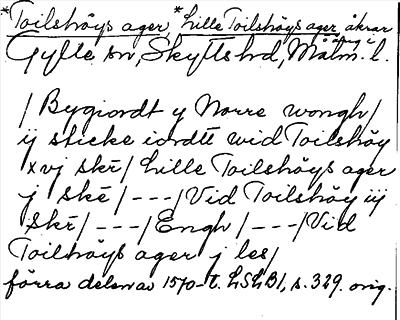 *Toilshöys ager, *Lille Toilshöys ager, åkrar
Gylle sn, Skytts hd, Malm. l.
/Bygiordt y Norre wongh/
ij sticke iordtt wid Toilshöy
xvj skē/Lille Toilshöys ager
j skē/---/Vid Toilshöy iij
skē/---/Engh/---/Vid
Toilhöys ager j les/
förra delen av 1570-t. LSLB1, s. 329. orig.